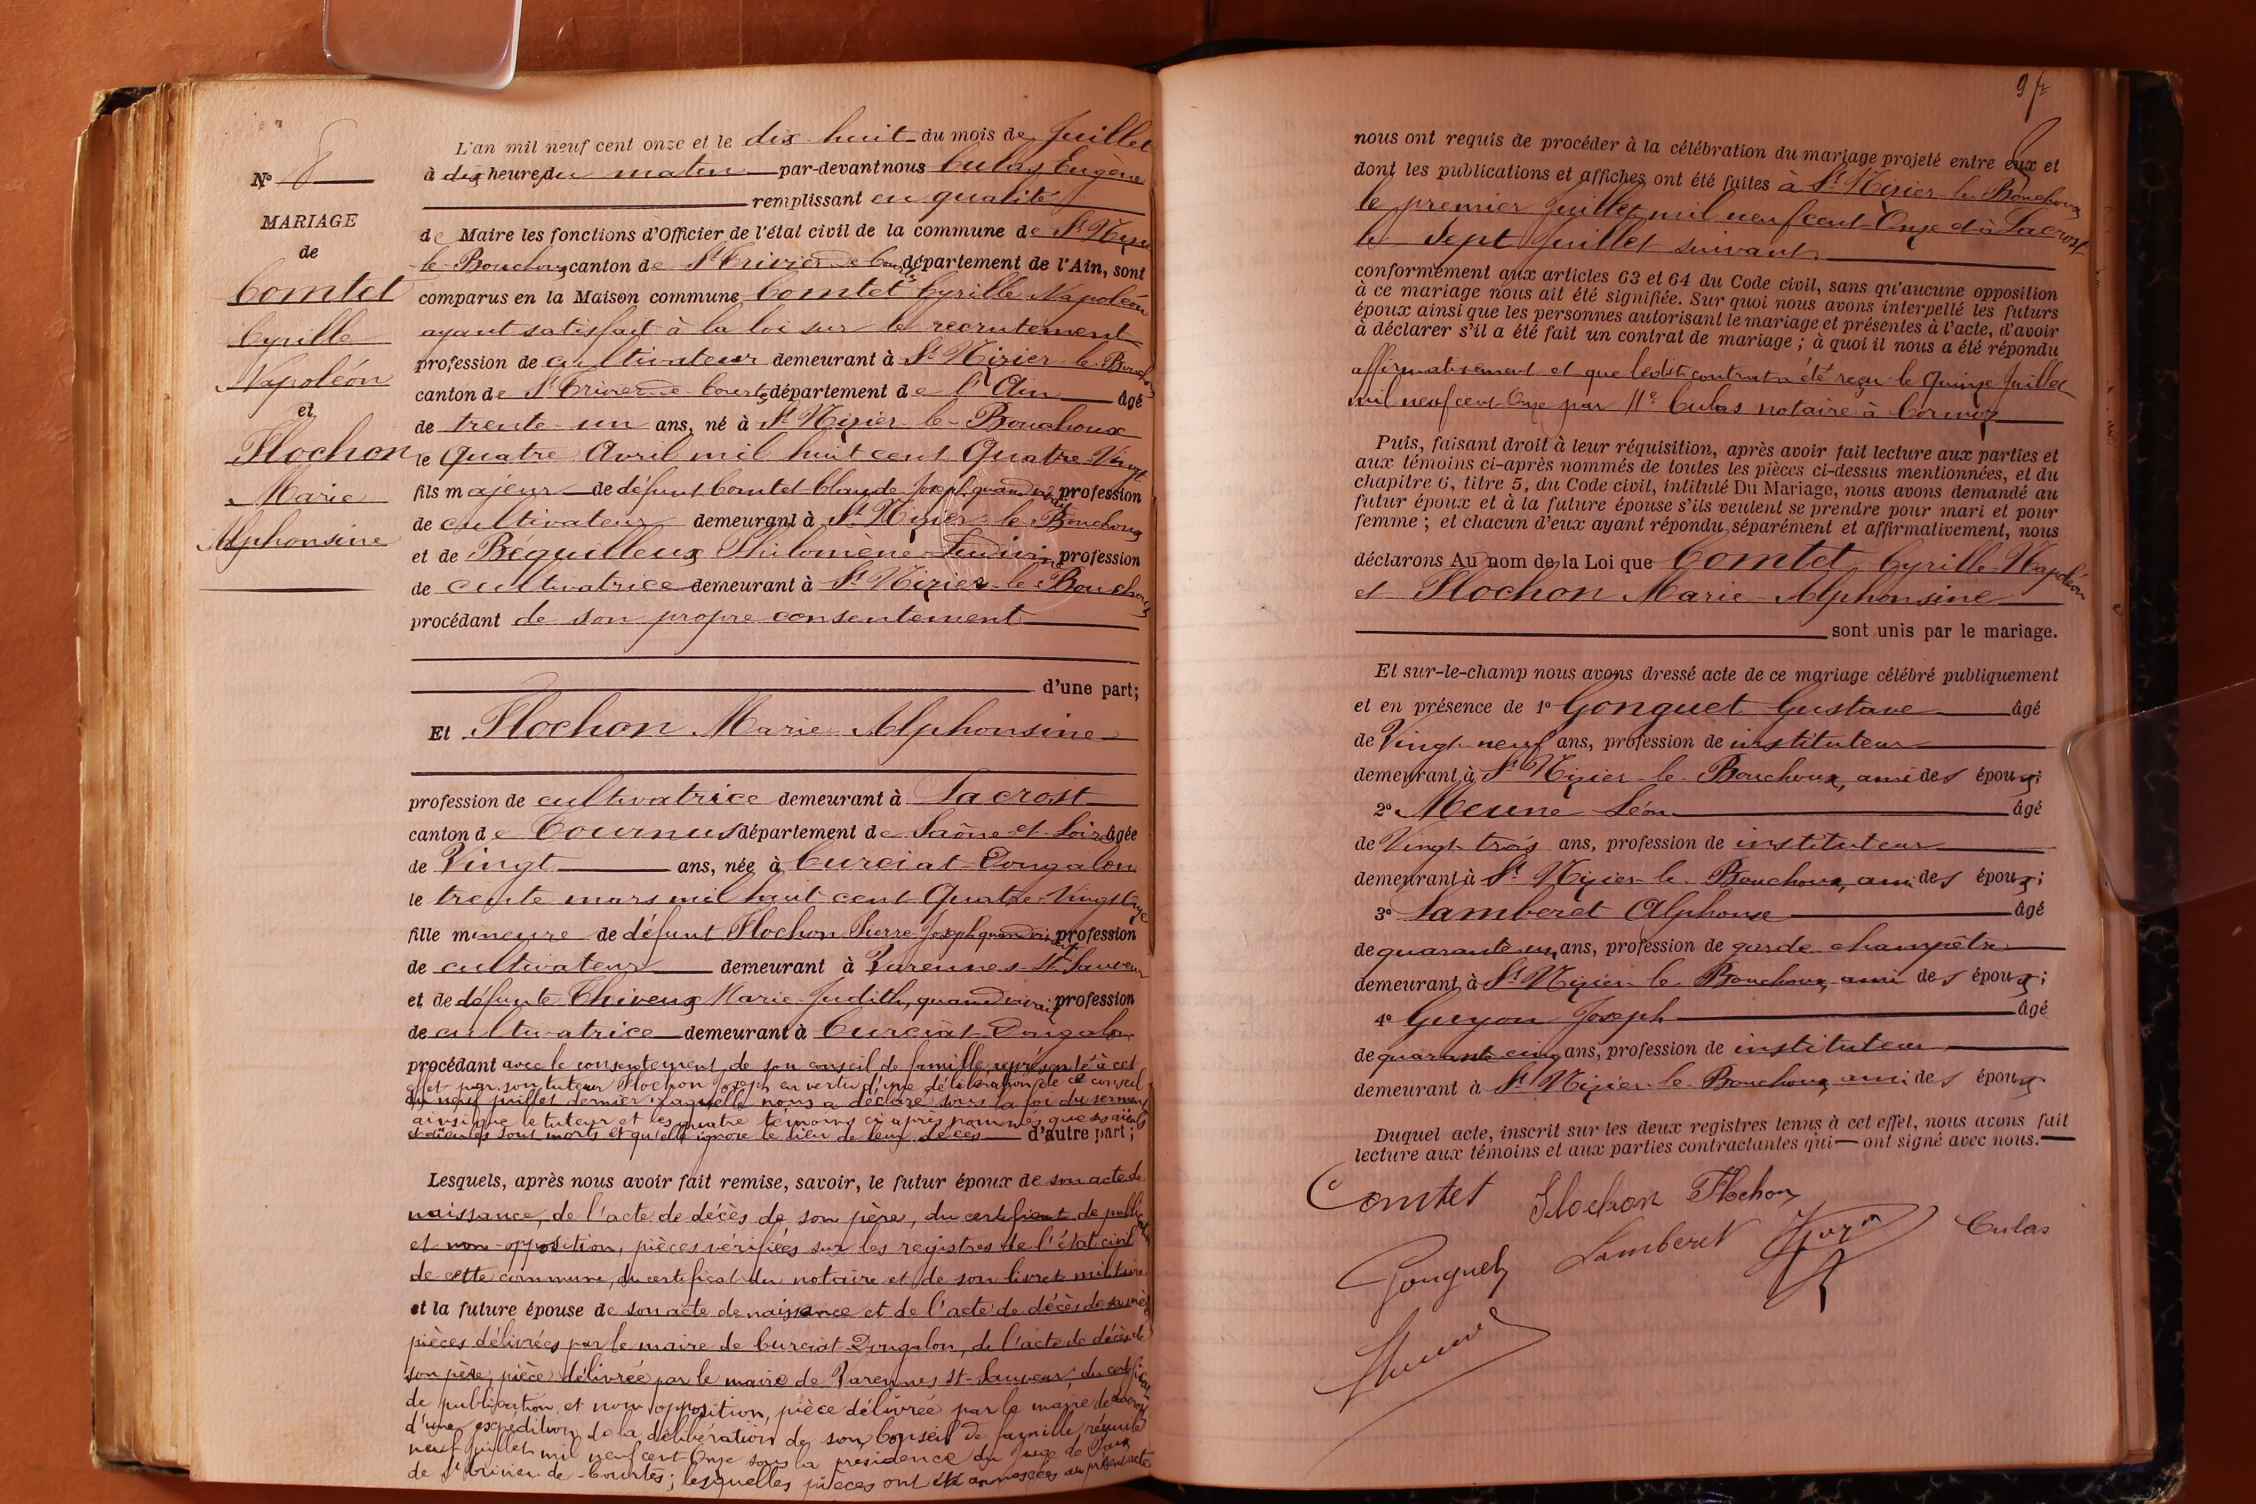 N° 8
MARIAGE
de
Comtet
Cyrille
Napoléon
et
Flochon
Marie
Alphonsine
L'an mil neuf cent onze et le dix huit du mois de Juillet
à dix heures du matin par-devant nous Culas Eugène
remplissant en qualité
de Maire les fonctions d'Officier de l'état civil de la commune de St Nizier
le Bouchoux canton de St Trivier de Courtes département de l'Ain, sont
comparus en la Maison commune Comtet Cyrille Napoléon
ayant satisfait à la loi sur le recrutement
profession de cultivateur demeurant à St Nizier le Bouchoux
canton de St Trivier de Courtes département de l'Ain âgé
de trente-un ans, né à St Nizier le Bouchoux
le Quatre Avril mil huit cent Quatre Vingt
fils majeur de défunt Comtet Claude Joseph quand vivait profession
de cultivateur demeurant à St Nizier le Bouchoux
et de Béquilleux Philomène Ludivine profession
de cultivatrice demeurant à St Nizier le Bouchoux
procédant de son propre consentement
d'une part;
Et Flochon Marie Alphonsine
profession de cultivatrice demeurant à Lacrost
canton de Tournus département de Saône et Loire âgée
de Vingt ans, née à Curciat-Dongalon
le trente mars mil huit cent Quatre Vingt Onze
fille mineure de défunt Flochon Pierre Joseph quand vivait profession
de cultivateur demeurant à Varennes St Sauveur
et de défunte Thiveux Marie Judith, quand vivait profession
de cultivatrice demeurant à Curciat-Dongalon
procédant avec le consentement de son conseil de famille, représenté à cet
effet par son tuteur Flochon Joseph en vertu d'une délibération de ce conseil
du neuf juillet dernier laquelle nous a déclaré sous la foi du serment
ainsi que le tuteur et les quatre témoins ci après nommés que ses aïeuls
et aïeules sont morts et qu'elle ignore le lieu de leur décès d'autre part;
Lesquels, après nous avoir fait remise, savoir, le futur époux de son acte de
naissance, de l'acte de décès de son père, du certificat de publication
et non-opposition, pièces vérifiées sur les registres de l'état civil
de cette commune, du certificat du notaire et de son livret militaire
et la future épouse de son acte de naissance et de l'acte de décès de sa mère
pièces délivrées par le maire de Curciat-Dongalon, de l'acte de décès de
son père, pièce délivrée par le maire de Varennes St-Sauveur, du certificat
de publication et non opposition, pièce délivrée par le maire de Lacrost
d'une expédition de la délibération de son Conseil de famille, réuni le
neuf juillet mil neuf cent Onze sous la présidence du Juge de Paix
de St Trivier-de-Courtes; lesquelles pièces ont été annexées au présent acte
97
nous ont requis de procéder à la célébration du mariage projeté entre eux et
dont les publications et affiches ont été faites à St Nizier le Bouchoux
le premier Juillet mil neuf cent Onze et à Lacrost
le Sept Juillet suivant
conformément aux articles 63 et 64 du Code civil, sans qu'aucune opposition
à ce mariage nous ait été signifiée. Sur quoi nous avons interpellé les futurs
époux ainsi que les personnes autorisant le mariage et présentes à l'acte, d'avoir
à déclarer s'il a été fait un contrat de mariage; à quoi il nous a été répondu
affirmativement et que ledit contrat a été reçu le Quinze Juillet
mil neuf cent Onze par Me Culas notaire à Cormoz
Puis, faisant droit à leur réquisition, après avoir fait lecture aux parties et
aux témoins ci-après nommés de toutes les pièces ci-dessus mentionnées, et du
chapitre 6, titre 5, du Code civil, intitulé Du Mariage, nous avons demandé au
futur époux et à la future épouse s'ils veulent se prendre pour mari et pour
femme; et chacun d'eux ayant répondu séparément et affirmativement, nous
déclarons Au nom de la Loi que Comtet Cyrille Napoléon
et Flochon Marie Alphonsine
sont unis par le mariage.
Et sur-le-champ nous avons dressé acte de ce mariage célébré publiquement
et en présence de 1° Gonguet Gustave âgé
de Vingt neuf ans, profession de instituteur
demeurant à St Nizier le Bouchoux, ami des époux;
2° Meune Léon âgé
de Vingt trois ans, profession de instituteur
demeurant à St Nizier le Bouchoux, ami des époux;
3° Lamberet Alphonse âgé
de quarante un ans, profession de garde champêtre
demeurant à St Nizier le Bouchoux, ami des époux;
4° Guyon Joseph âgé
de quarante cinq ans, profession de instituteur
demeurant à St Nizier le Bouchoux ami des époux
Duquel acte, inscrit sur les deux registres tenus à cet effet, nous avons fait
lecture aux témoins et aux parties contractantes qui ont signé avec nous.
Comtet Flochon Flochon
Gonguet Lamberet Culas